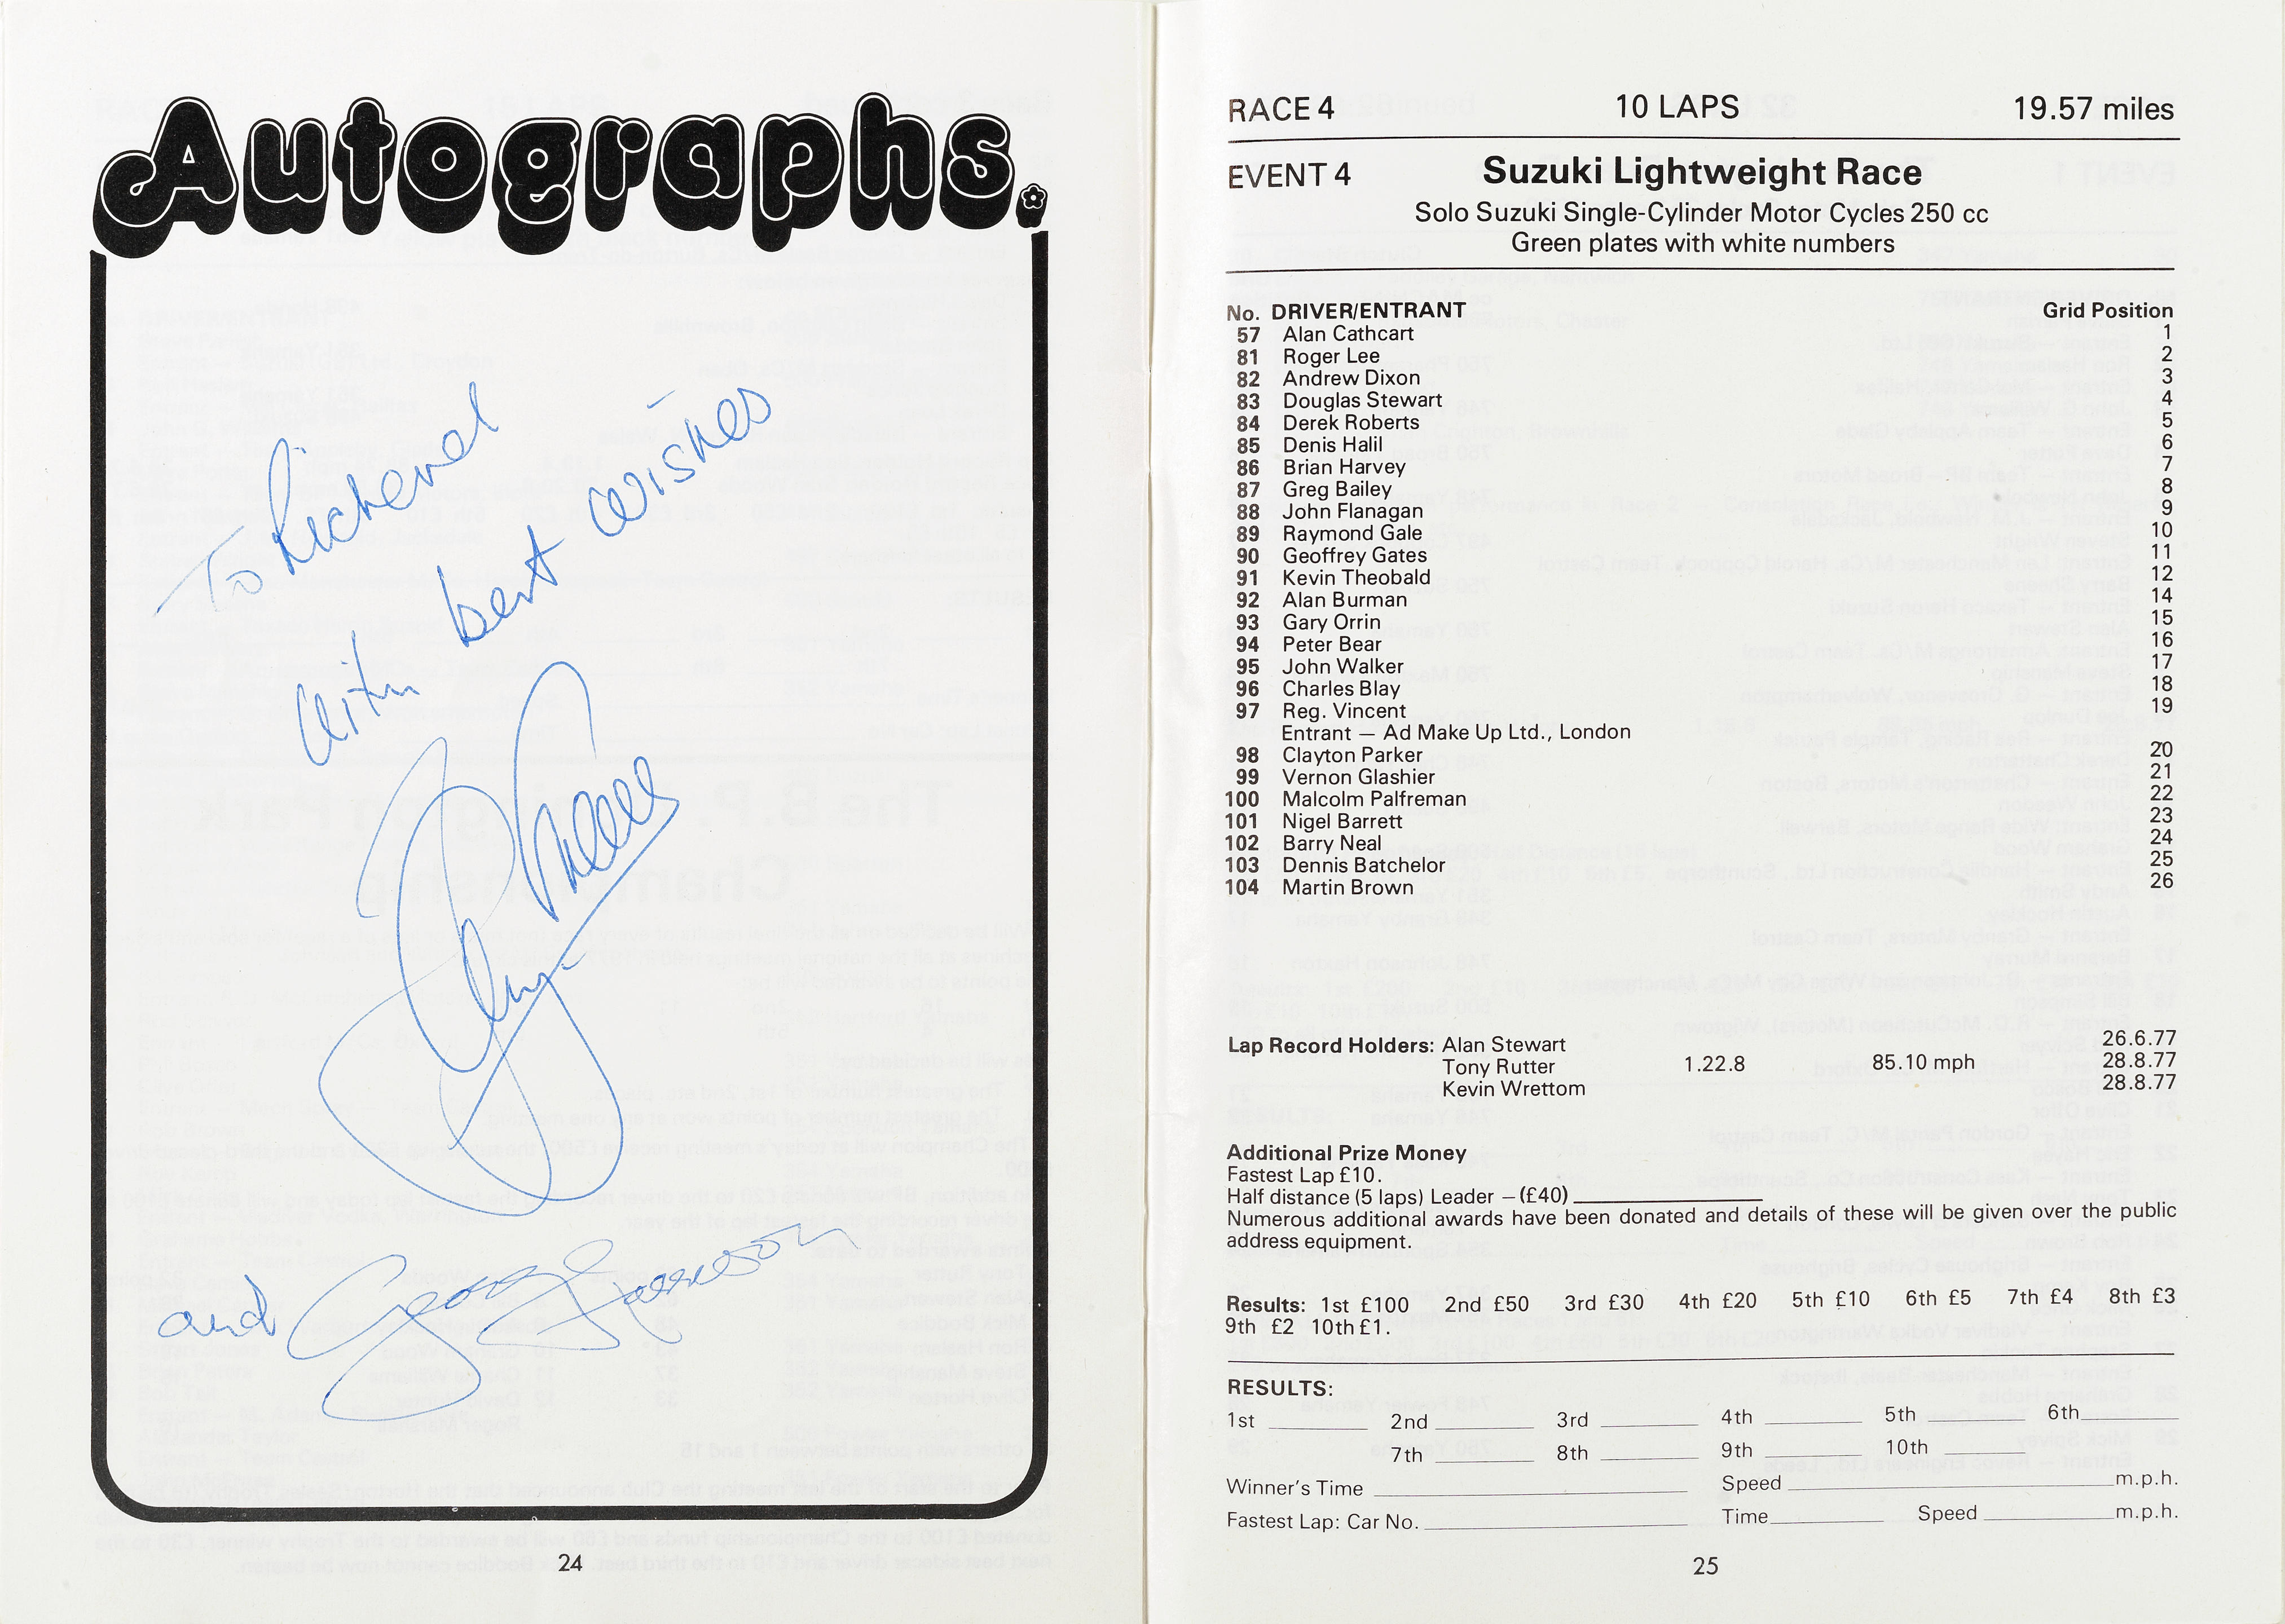 Autographs.
To Richard
with best wishes
and George Harrison
24
RACE 4 10 LAPS 19.57 miles
EVENT 4 Suzuki Lightweight Race
Solo Suzuki Single-Cylinder Motor Cycles 250 cc
Green plates with white numbers
No. DRIVER/ENTRANT Grid Position
57 Alan Cathcart 1
81 Roger Lee 2
82 Andrew Dixon 3
83 Douglas Stewart 4
84 Derek Roberts 5
85 Denis Halil 6
86 Brian Harvey 7
87 Greg Bailey 8
88 John Flanagan 9
89 Raymond Gale 10
90 Geoffrey Gates 11
91 Kevin Theobald 12
92 Alan Burman 14
93 Gary Orrin 15
94 Peter Bear 16
95 John Walker 17
96 Charles Blay 18
97 Reg. Vincent 19
Entrant — Ad Make Up Ltd., London
98 Clayton Parker 20
99 Vernon Glashier 21
100 Malcolm Palfreman 22
101 Nigel Barrett 23
102 Barry Neal 24
103 Dennis Batchelor 25
104 Martin Brown 26
Lap Record Holders: Alan Stewart 26.6.77
Tony Rutter 1.22.8 85.10 mph 28.8.77
Kevin Wrettom 28.8.77
Additional Prize Money
Fastest Lap £10.
Half distance (5 laps) Leader — (£40)
Numerous additional awards have been donated and details of these will be given over the public
address equipment.
Results: 1st £100 2nd £50 3rd £30 4th £20 5th £10 6th £5 7th £4 8th £3
9th £2 10th £1.
RESULTS:
1st 2nd 3rd 4th 5th 6th
7th 8th 9th 10th
Winner's Time Speed m.p.h.
Fastest Lap: Car No. Time Speed m.p.h.
25